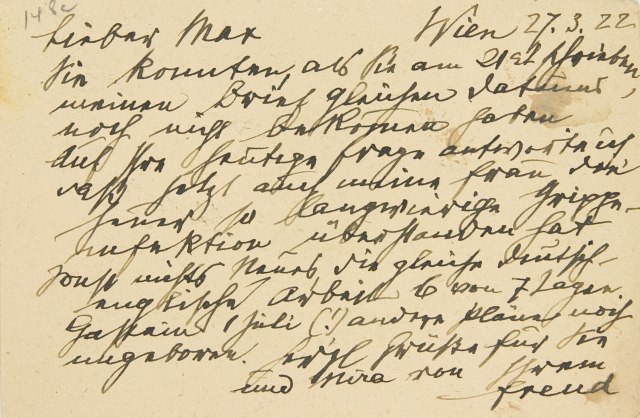 148c
Lieber Max Wien 27.3.22
Sie konnten, als Sie am 21st schrieben
meinen Brief gleichen Datums,
noch nicht bekommen haben
Auf Ihre heutige Frage antworte ich
daß jetzt auch meine Frau die
heuer so langwierige Grippe-
infektion überstanden hat
sonst nichts Neues, die gleiche deutsch-
englische Arbeit 6 von 7 Tagen
Gastein 1 Juli (!) andere Pläne noch
ungeboren. Herzl Grüße für Sie
und Mira von Ihrem
Freud